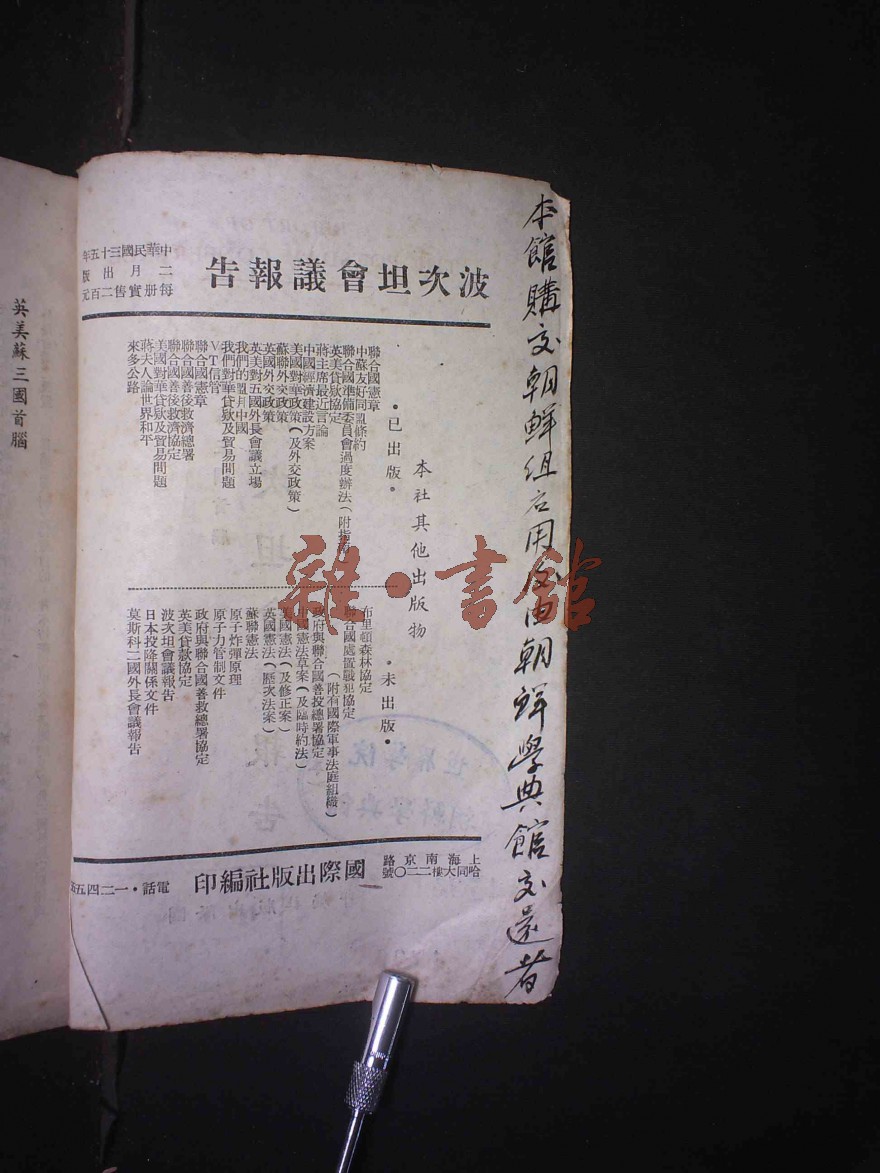 本館購交朝鮮組應用今由朝鮮學典館交還者
波次坦會議報告
中華民國三十五年
二月出版
每册實售二百元
本社其他出版物
•已出版•
聯合國憲章
中蘇友好同盟條約
聯合國準備委員會過度辦法(附指南
英美貸欵協定
蔣主席最近言論
中國經濟建設方案
美國對華政策(及外交政策)
蘇聯外交政策
英國外交政策
英美對五國外長會議立場
我們的盟月中國
我們對華貸欵及貿易問題
VT信管
聯合國憲章
聯合國善後救濟總署
聯合國善後救濟協定
美國對華貸欵及貿易問題
蔣夫人論世界和平
來多公路
•未出版•
布里頓森林協定
聯合國處置戰犯協定
(附有國際軍事法庭組織)
政府與聯合國善投總署協定
中國憲法草案(及臨時約法)
美國憲法(及修正案)
英國憲法(歷次法案)
蘇聯憲法
原子炸彈原理
原子力管制文件
政府與聯合國善救總署協定
英美貸款協定
波次坦會議報告
日本投降關係文件
莫斯科二國外長會議報告
上海南京路
哈同大樓二二〇號
國際出版社編印
電話•一二四五
英美蘇三國首腦
雜•書館
世界學院